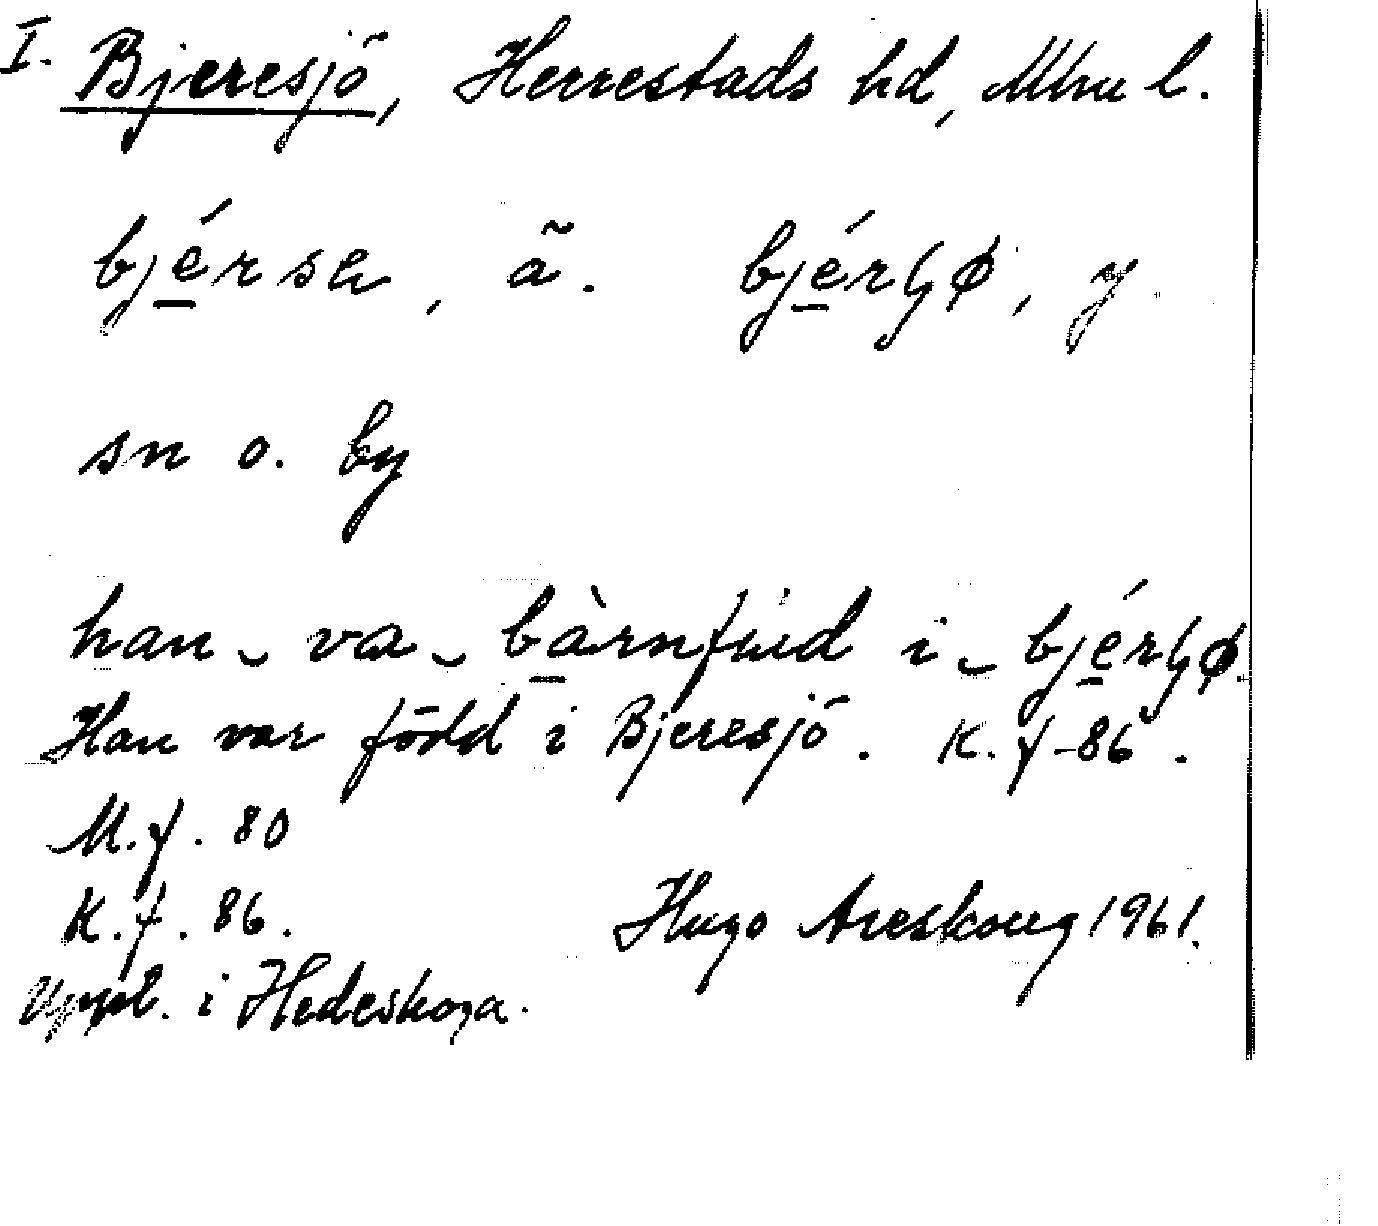 I. Bjeresjö, Herrestads hd, Mhu l.
bjérsa, ã. bjérɧø, y.
sn o. by
han va bàrnfiːd i bjérɧø.
Han var född i Bjeresjö. K. f-86.
M. f. 80
K. f. 86. Hugo Areskoug 1961.
Uppt. i Hedeskoga.